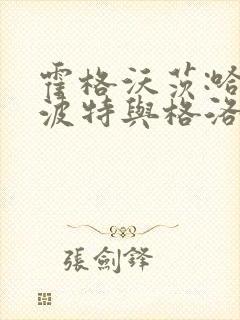 霍格沃茨哈
波特與格洛
張劍鋒